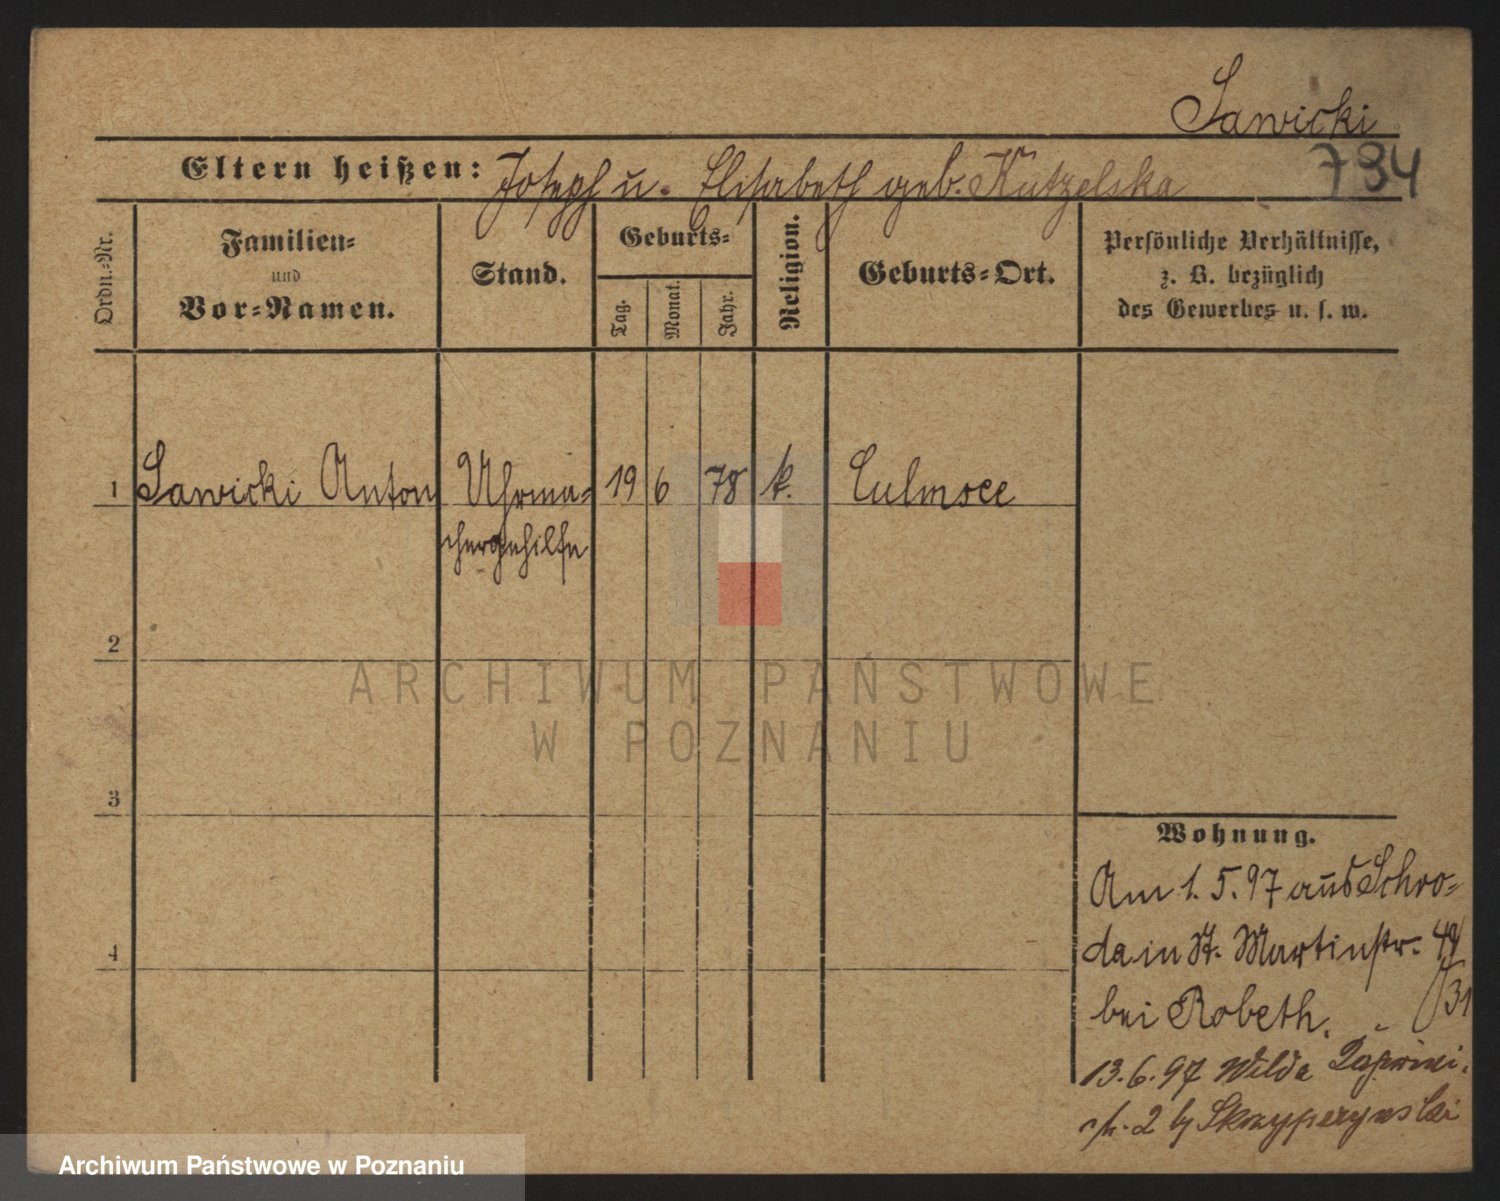 Sawicki
794
Eltern heißen: Joseph u. Elisabeth geb. Kutzelska
Ordn.-Nr.
Familien-
und
Vor-Namen.
Stand.
Geburts-
Tag.
Monat.
Jahr.
Religion.
Geburts-Ort.
Persönliche Verhältnisse,
z. B. bezüglich
des Gewerbes u. s. w.
1 Sawicki Anton Uhrma- 19 6 78 k. Culmsee
chergehilfe
2
3
4
Wohnung.
Am 1. 5. 97 aus Schro-
da in St. Martinstr.
bei Robeth. 31
13. 6. 97 Wilda
2
ARCHIWUM PAŃSTWOWE
W POZNANIU
Archiwum Państwowe w Poznaniu